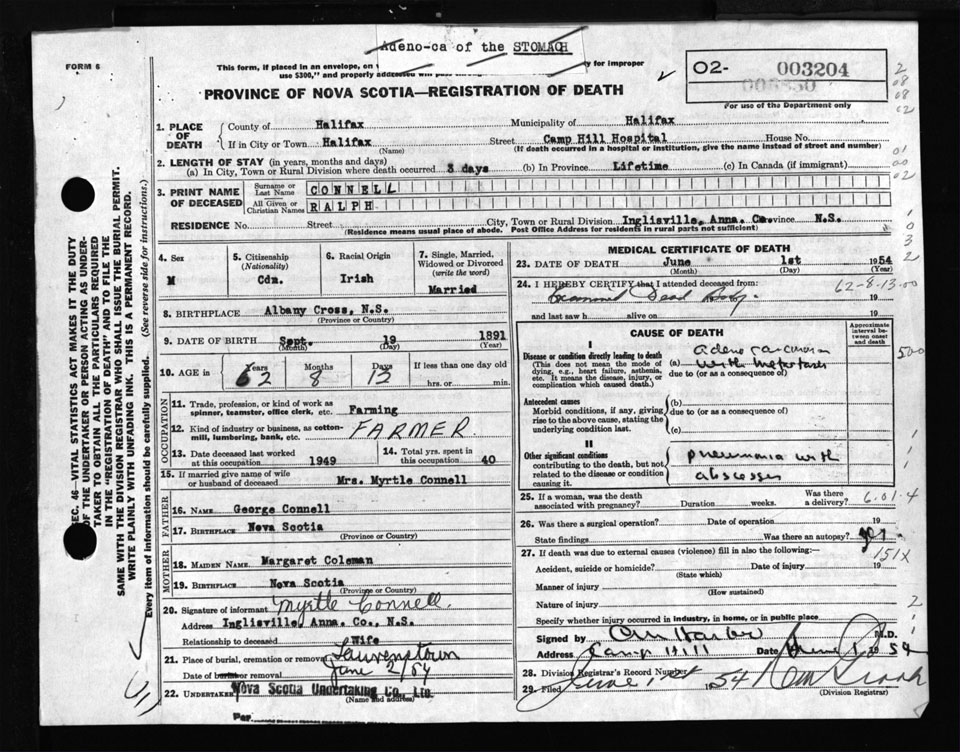 Adeno-ca of the STOMACH
FORM 6
This form, if placed in an envelope, on
ty for improper
use $300," and properly addressed will pass
PROVINCE OF NOVA SCOTIA—REGISTRATION OF DEATH
O2- 003204
For use of the Department only
1. PLACE OF DEATH
County of Halifax Municipality of Halifax
If in City or Town Halifax Street Camp Hill Hospital House No.
(Name) (If death occurred in a hospital or institution, give the name instead of street and number)
2. LENGTH OF STAY (in years, months and days)
(a) In City, Town or Rural Division where death occurred 3 days (b) In Province Lifetime (c) In Canada (if immigrant)
3. PRINT NAME OF DECEASED
Surname or Last Name CONNELL
All Given or Christian Names RALPH
RESIDENCE No. Street City, Town or Rural Division Inglisville, Anna. Co. Province N.S.
(Residence means usual place of abode. Post Office Address for residents in rural parts not sufficient)
4. Sex
M
5. Citizenship
(Nationality)
Cdn.
6. Racial Origin
Irish
7. Single, Married, Widowed or Divorced
(write the word)
Married
8. BIRTHPLACE Albany Cross, N.S.
(Province or Country)
9. DATE OF BIRTH Sept. 19 1891
(Month) (Day) (Year)
10. AGE in Years Months Days If less than one day old
62 8 13 hrs. or min.
OCCUPATION
11. Trade, profession, or kind of work as spinner, teamster, office clerk, etc. Farming
12. Kind of industry or business, as cotton-mill, lumbering, bank, etc. FARMER
13. Date deceased last worked at this occupation 1949
14. Total yrs. spent in this occupation 40
15. If married give name of wife or husband of deceased Mrs. Myrtle Connell
FATHER
16. NAME George Connell
17. BIRTHPLACE Nova Scotia
(Province or Country)
MOTHER
18. MAIDEN NAME Margaret Coleman
19. BIRTHPLACE Nova Scotia
(Province or Country)
20. Signature of informant Myrtle Connell.
Address Inglisville, Anna. Co., N.S.
Relationship to deceased Wife
21. Place of burial, cremation or removal Lawrencetown
Date of burial or removal June 2/54
22. UNDERTAKER Nova Scotia Undertaking Co., Ltd.
(Name and address)
Per
MEDICAL CERTIFICATE OF DEATH
23. DATE OF DEATH June 1st 1954
(Month) (Day) (Year)
24. I HEREBY CERTIFY that I attended deceased from:
62-8-13.00
Examined Dead Body. 19
and last saw h alive on 19
CAUSE OF DEATH
Approximate interval between onset and death
I
Disease or condition directly leading to death
(This does not mean the mode of dying, e.g., heart failure, asthenia, etc. It means the disease, injury, or complication which caused death.)
(a) adeno carcinoma
with metastases
due to (or as a consequence of)
500
Antecedent causes
Morbid conditions, if any, giving rise to the above cause, stating the underlying condition last.
(b)
due to (or as a consequence of)
(c)
II
Other significant conditions
contributing to the death, but not related to the disease or condition causing it.
pneumonia with
abscesses
25. If a woman, was the death associated with pregnancy? Duration weeks. Was there a delivery?
6.01.4
26. Was there a surgical operation? Date of operation 19
State findings Was there an autopsy? yes
151X
27. If death was due to external causes (violence) fill in also the following:—
Accident, suicide or homicide? Date of injury 19
(State which)
Manner of injury
(How sustained)
Nature of injury
Specify whether injury occurred in industry, in home, or in public place
Signed by M.D.
Address Camp Hill Date June 1 1954
28. Division Registrar's Record Number
29. Filed June 1st 1954
(Division Registrar)
SEC. 46—VITAL STATISTICS ACT MAKES IT THE DUTY
OF THE UNDERTAKER OR PERSON ACTING AS UNDER-
TAKER TO OBTAIN ALL THE PARTICULARS REQUIRED
IN THE "REGISTRATION OF DEATH" AND TO FILE THE
SAME WITH THE DIVISION REGISTRAR WHO SHALL ISSUE THE BURIAL PERMIT.
WRITE PLAINLY WITH UNFADING INK. THIS IS A PERMANENT RECORD.
Every item of information should be carefully supplied. (See reverse side for instructions.)